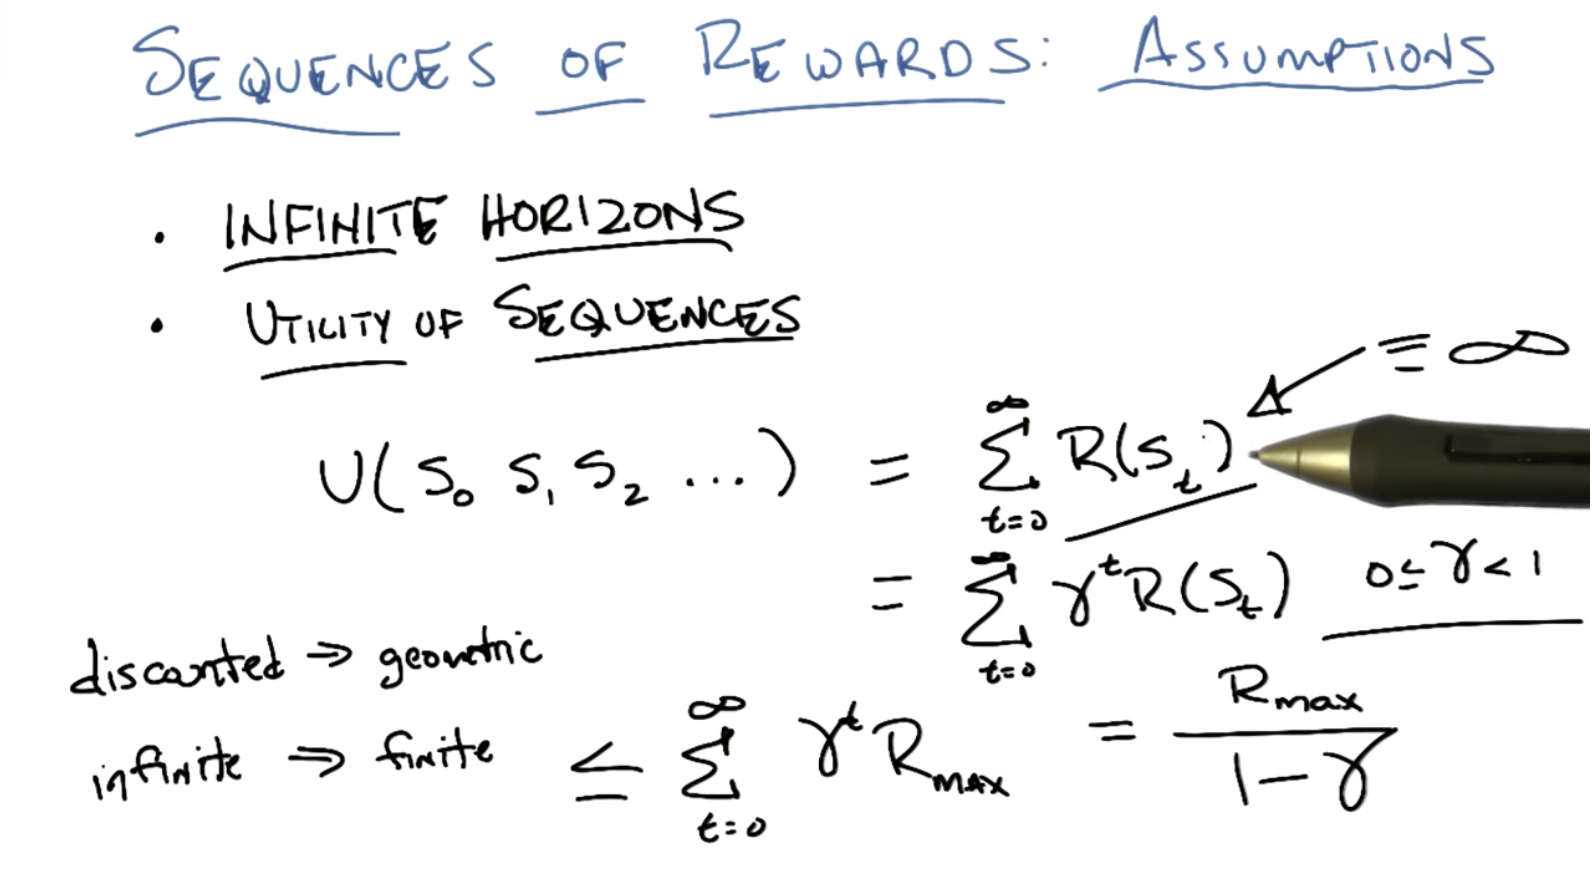 SEQUENCES OF REWARDS: ASSUMPTIONS
· INFINITE HORIZONS
· UTILITY OF SEQUENCES
≡ ∞
U(S₀ S₁ S₂ ...) = ∑_{t=0}^{∞} R(S_t)
= ∑_{t=0}^{∞} γ^t R(S_t) 0 ≤ γ < 1
discounted ⇒ geometric
infinite ⇒ finite ≤ ∑_{t=0}^{∞} γ^t R_max = R_max / 1-γ